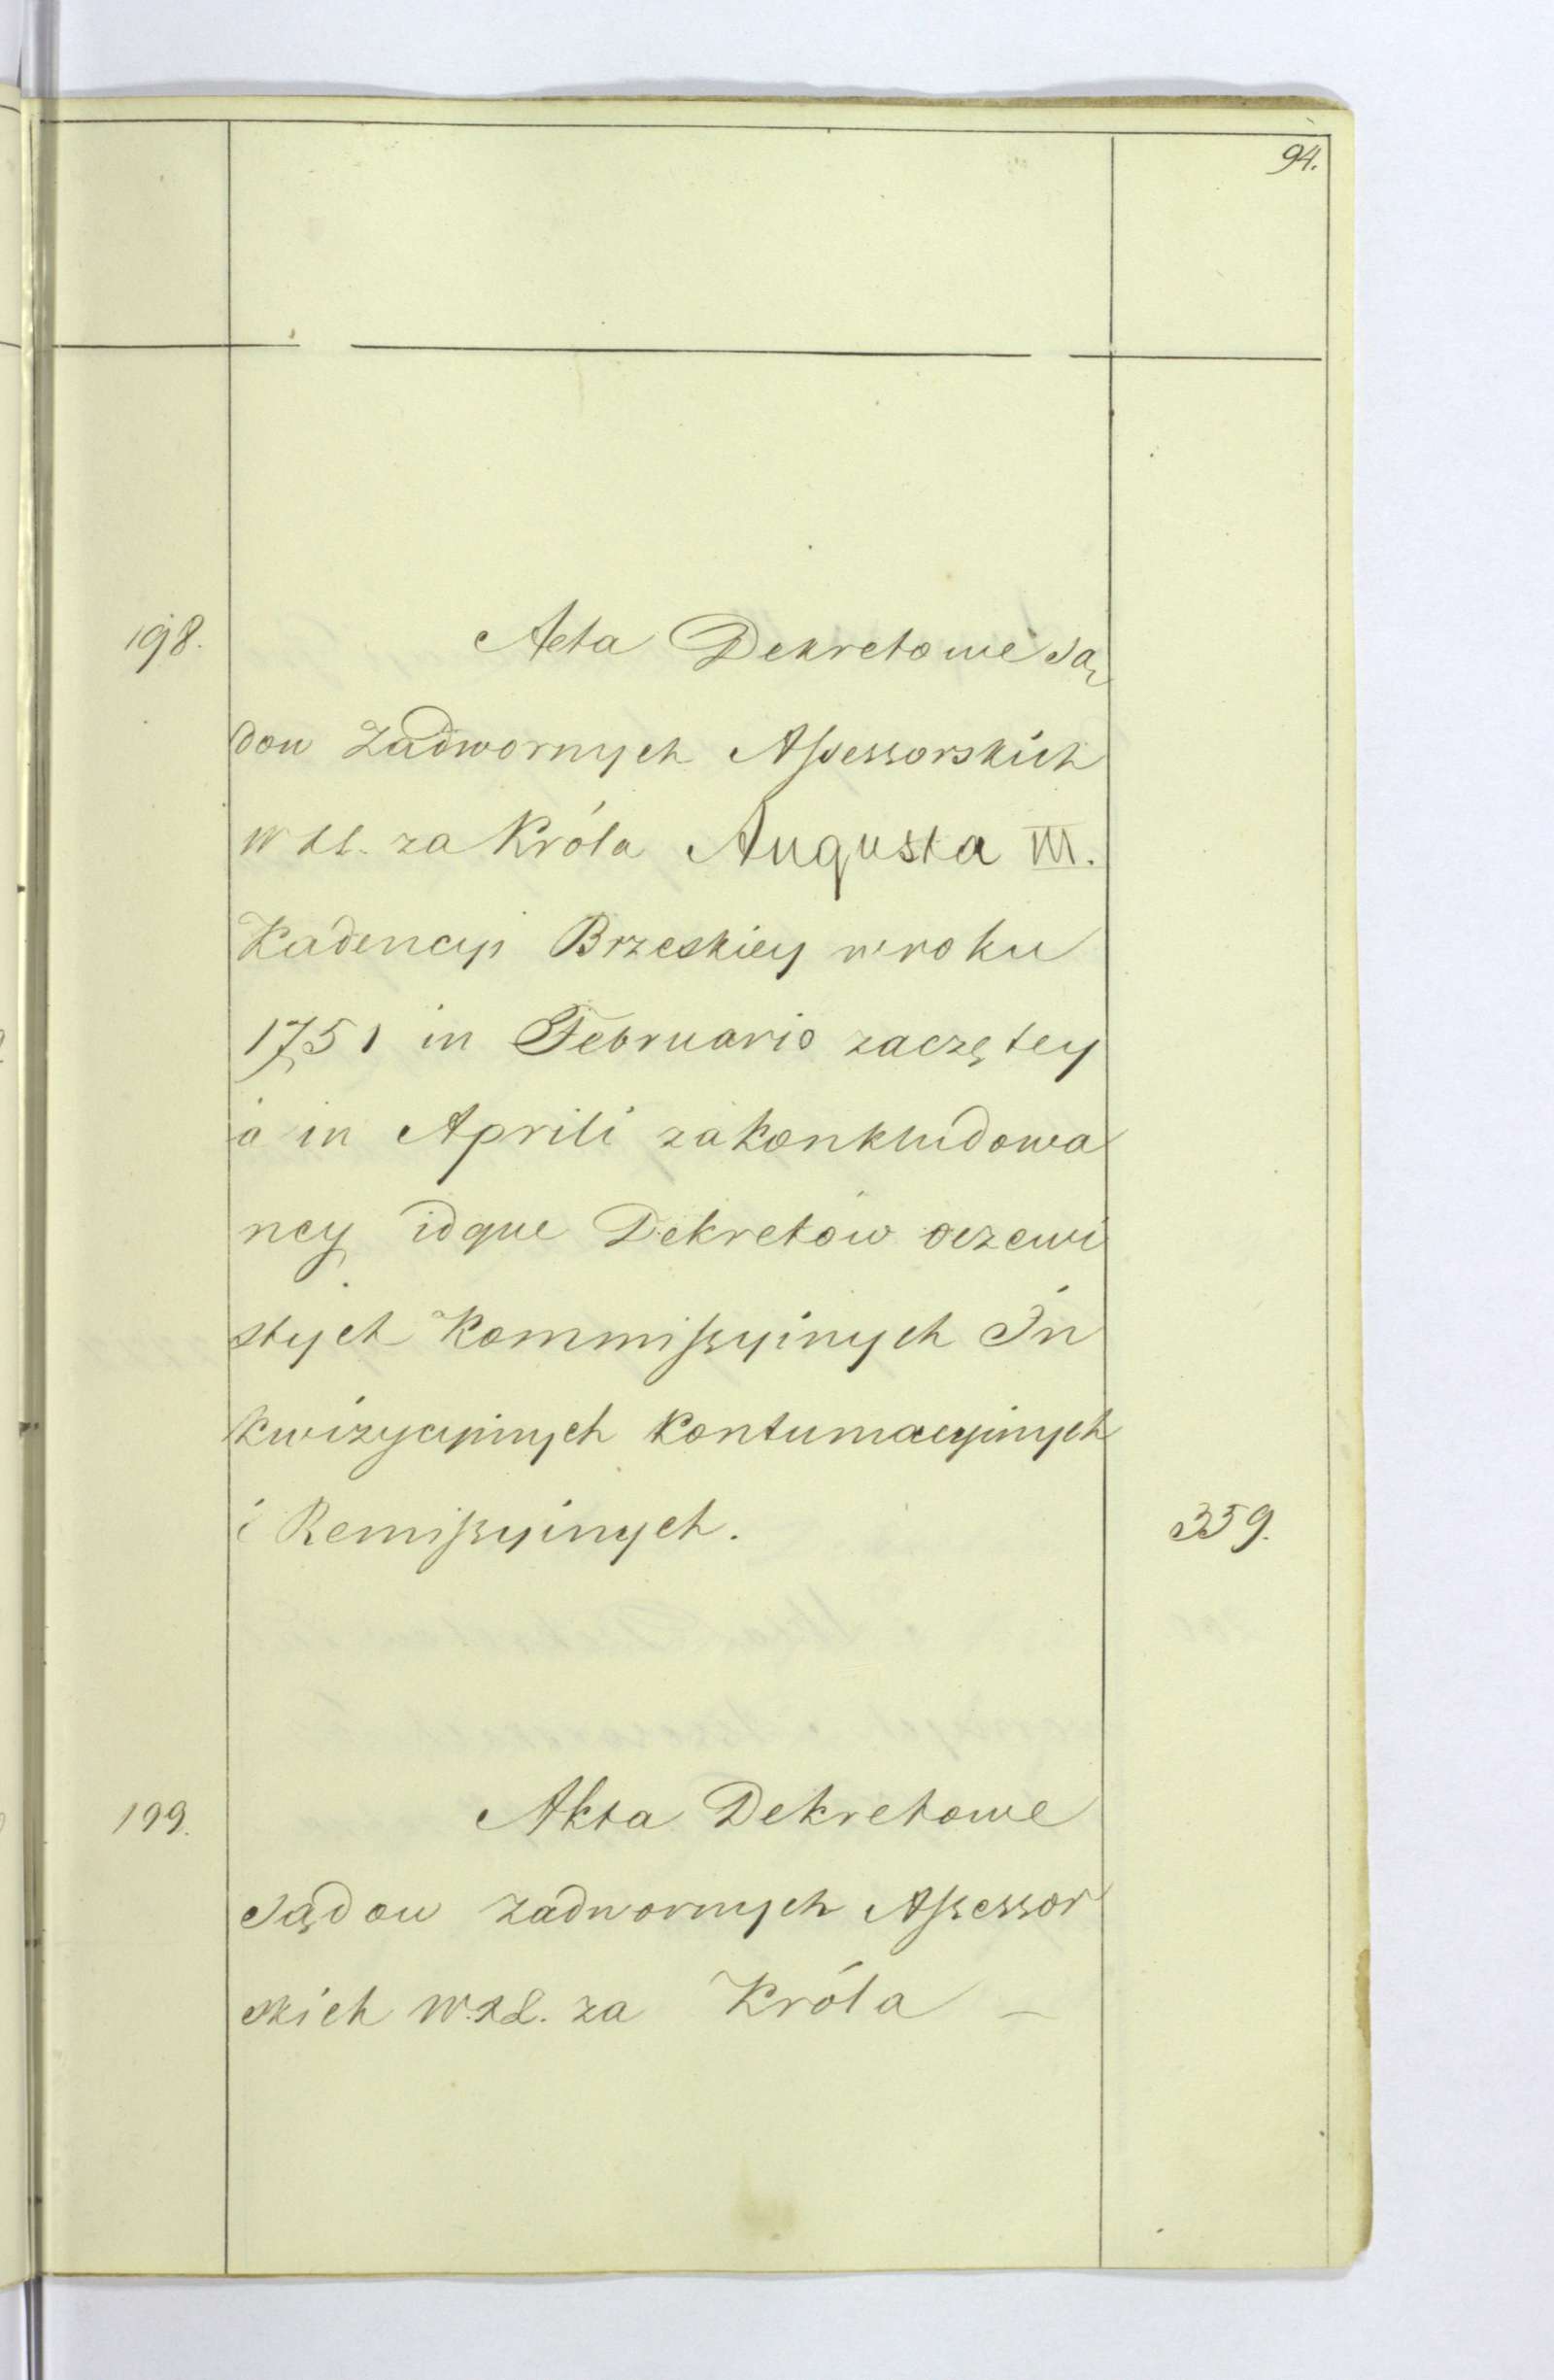 94.
198. Acta Dekretowe Są
dow Zadwornych Assessorskich
W X L. za Króla Augusta III.
Kadencyi Brzeskiey w roku
1751 in Februario zaczętey
a in Aprili zakonkludowa
ney idque Dekretów oczewi
stych Kommissyinych In
kwizycyinych Kontumacyinych
i Remissyinych. 359.
199. Akta Dekretowe
Sądow Zadwornych Assessor
skich W. X L. za Króla –